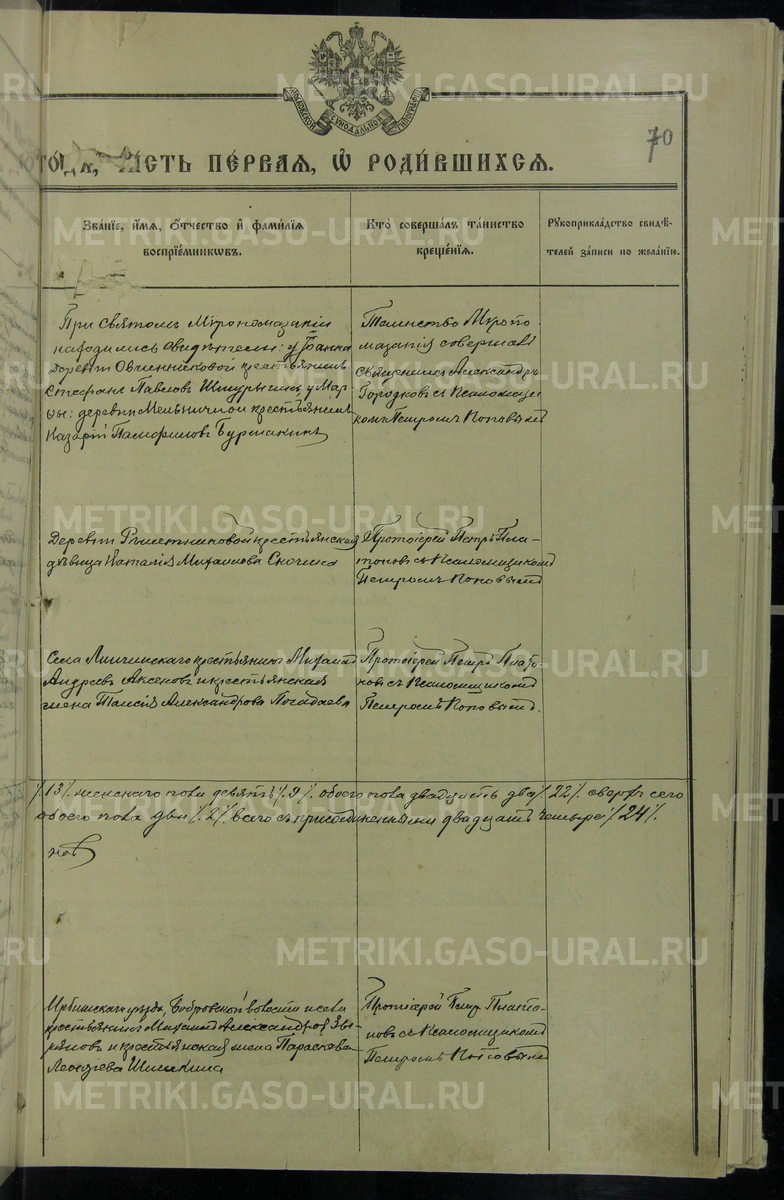 METRIKI.GASO-URAL.RU
МОСКОВСКОЙ СѴНОДАЛЬНОЙ ТИПОГРАФІИ
70
ГОДЪ, ЧА́СТЬ ПЕ́РВАЯ, Ѡ РОДИ́ВШИХСЯ.
Зва́нїе, и́мя, о́тчество и фами́лїя
воспрїе́мниковъ.
Кто̀ соверша́лъ та́инство
креще́нїя.
Рꙋкоприкла́дство свидѣ́-
телей за́писи по жела́нїю.
При Святомъ Мѵропомазаніи
находились свидѣтели: у Іоанна
деревни Овчинниковой крестьянинъ
Стефанъ Павловъ Шмурыгинъ, у Мар-
ѳы: деревни Мельничной крестьянинъ
Назарій Памфиловъ Бурмакинъ
Таинство Мѵропо-
мазанія совершалъ
Священникъ Александръ
Городковъ съ Псаломщи-
комъ Петромъ Поповымъ
Деревни Рѣшетниковой крестьянская
дѣвица Наталія Михаилова Скочина
Протоіерей Петръ Пла-
тоновъ съ Псаломщикомъ
Петромъ Поповымъ
Села крестьянинъ Михаилъ
Андреевъ Аксеновъ и крестьянская
жена Таисія Александрова Погадаева
Протоіерей Петръ Плато-
новъ съ Псаломщикомъ
Петромъ Поповымъ.
% 13 % женскаго пола девять % 9 % обоего пола двадцать два % 22 % сверхъ сего
обоего пола два % 2 % всего съ присоединенными двадцать четыре % 24 %
новъ
Ирбитскаго уѣзда, Бобровской волости и села
крестьянинъ Михаилъ Александровъ Зы-
ряновъ и крестьянская жена Параскева
Леонтіева Шишкина
Протоіерей Петръ Плато-
новъ съ Псаломщикомъ
Петромъ Поповымъ